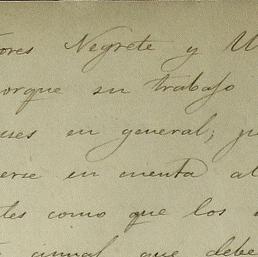 ores Negrete y U
orque su trabajo
ues en general; p
erse en cuenta al
tes como que los
anual que debe